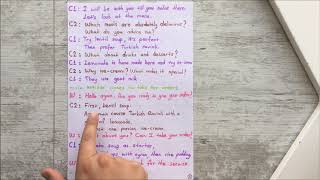 C1: I will be with you till you solve them.
Let's look at the menu.
C2: Which meals are absolutely delicious?
What do you advice me?
C1: Try lentil soup, it's perfect.
Then prefer Turkish ravioli.
C2: What about drinks and desserts?
C1: Lemonade is hand made here and try ice cream
C2: Why ice-cream? What makes it special?
C1: They use goat milk.
W: Hello again. Are you ready to give your orders?
C2: First, lentil soup.
As main course Turkish Ravioli with a
lemonade.
one portion ice-cream.
W: What about you? Can I take your order?
C1: soup as starter,
with ayran then rice pudding
W: for the service.